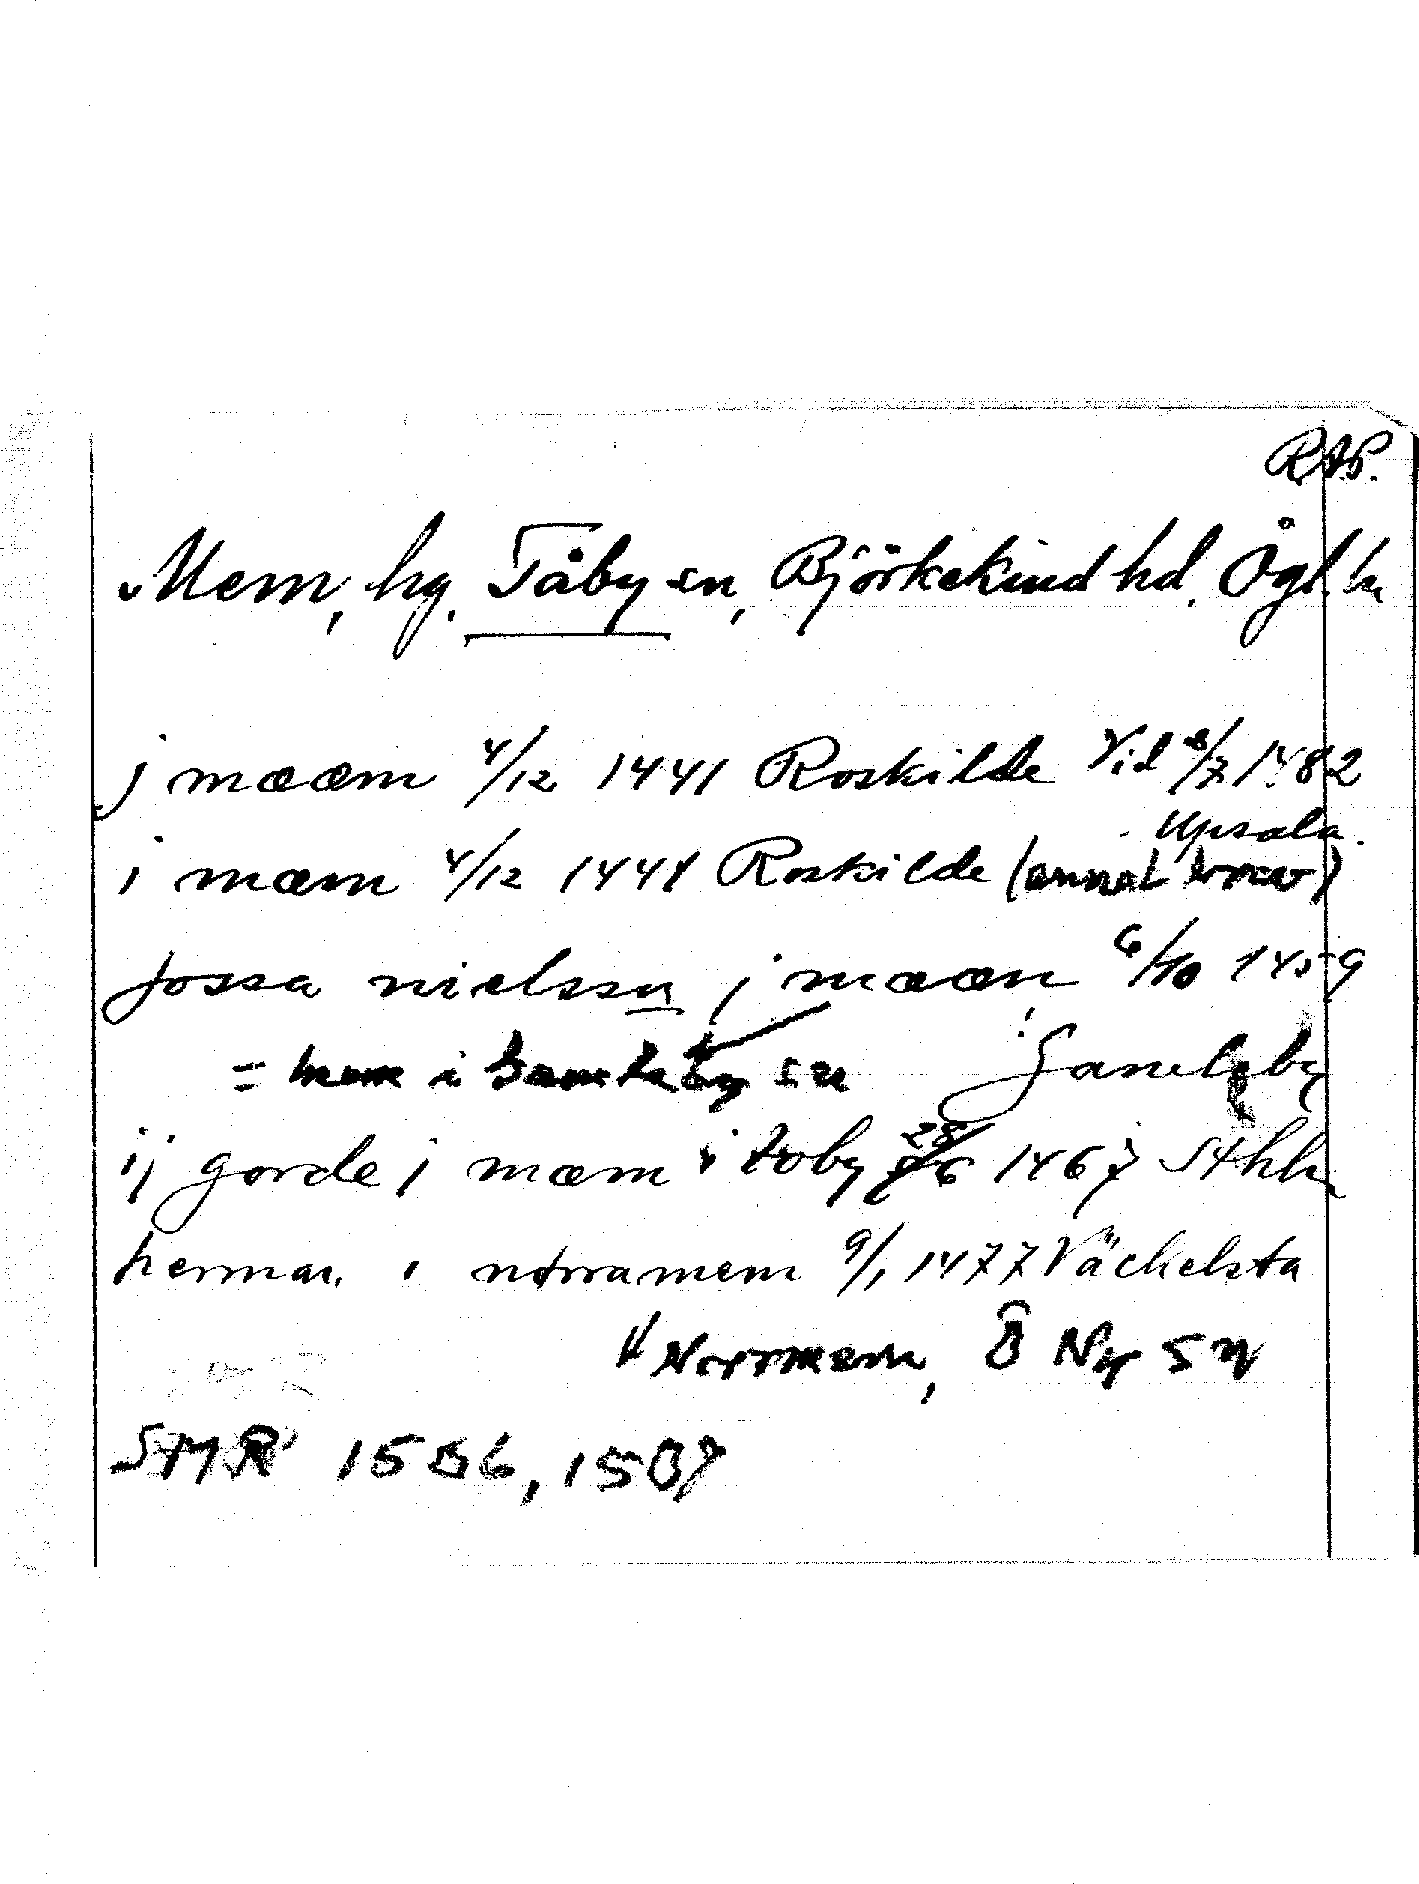 RAP.
Mem, hg. Tåby sn, Björkekind hd. Ögl. ln
j mææm 4/12 1441 Roskilde Vid 8/7 1482
Upsala.
i mæm 4/12 1441 Roskilde (annat brev)
Jossa nielssn j mææn 6/10 1459
= mem i Gamleby sn Gamleby
ij gorde j mæm i toby 28/6 1467 Sthlm
herman i norramem 9/1 1477 Väckelsta
Norrmem, Ö Ny sn
SMR 1506, 1507